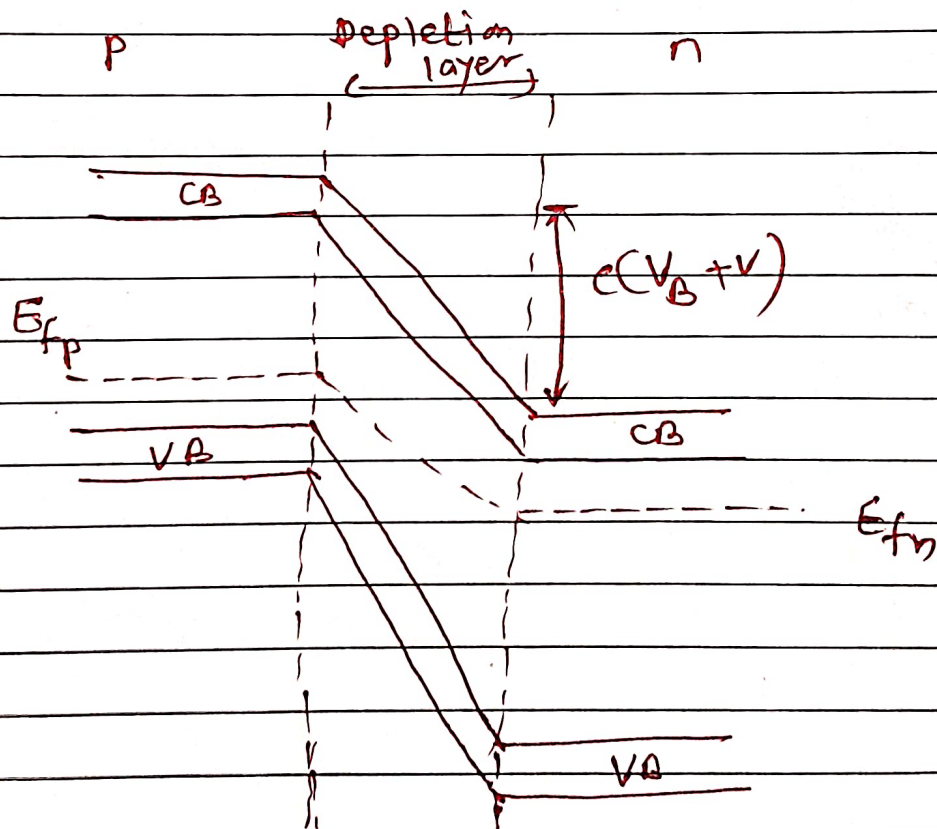 p
Depletion
layer
n
CB
e(V_B+V)
E_fp
VB
CB
E_fn
VB